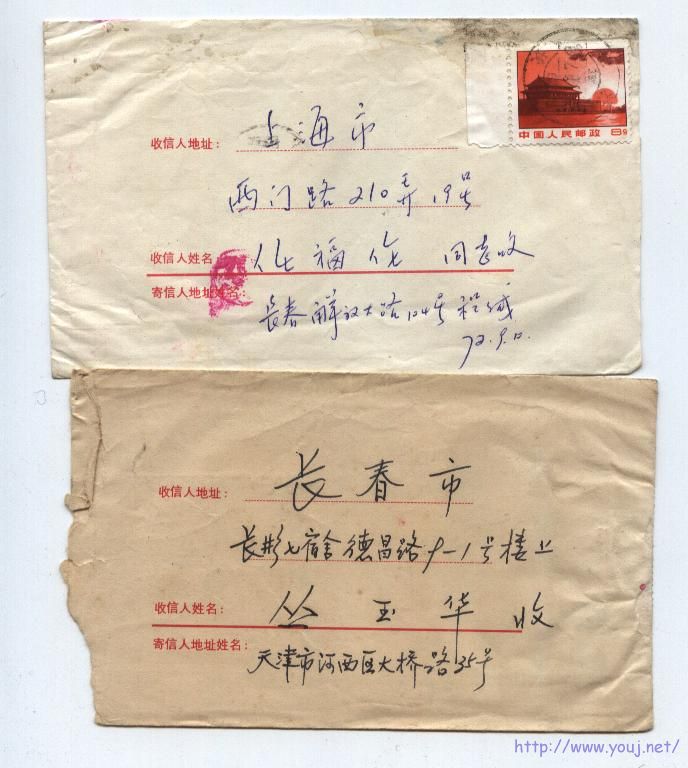 中国人民邮政 8分
收信人地址： 上海市
西门路210弄19号
收信人姓名 福 同志收
寄信人地址姓名：
长春解放大路104号 缄
72.9.10.
收信人地址： 长春市
长影七宿舍德昌路9-1号楼上
收信人姓名： 丛玉华 收
寄信人地址姓名：
天津市河西区大桥路35号
http://www.youj.net/